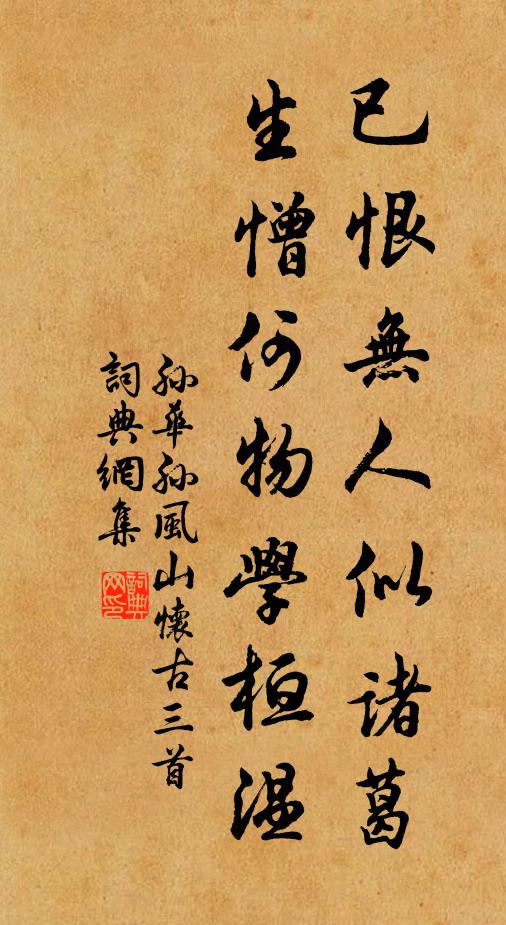 已恨無人似諸葛
生憎何物學桓温
孙華孙風山懷古三首
詞典網集
詞典
网印